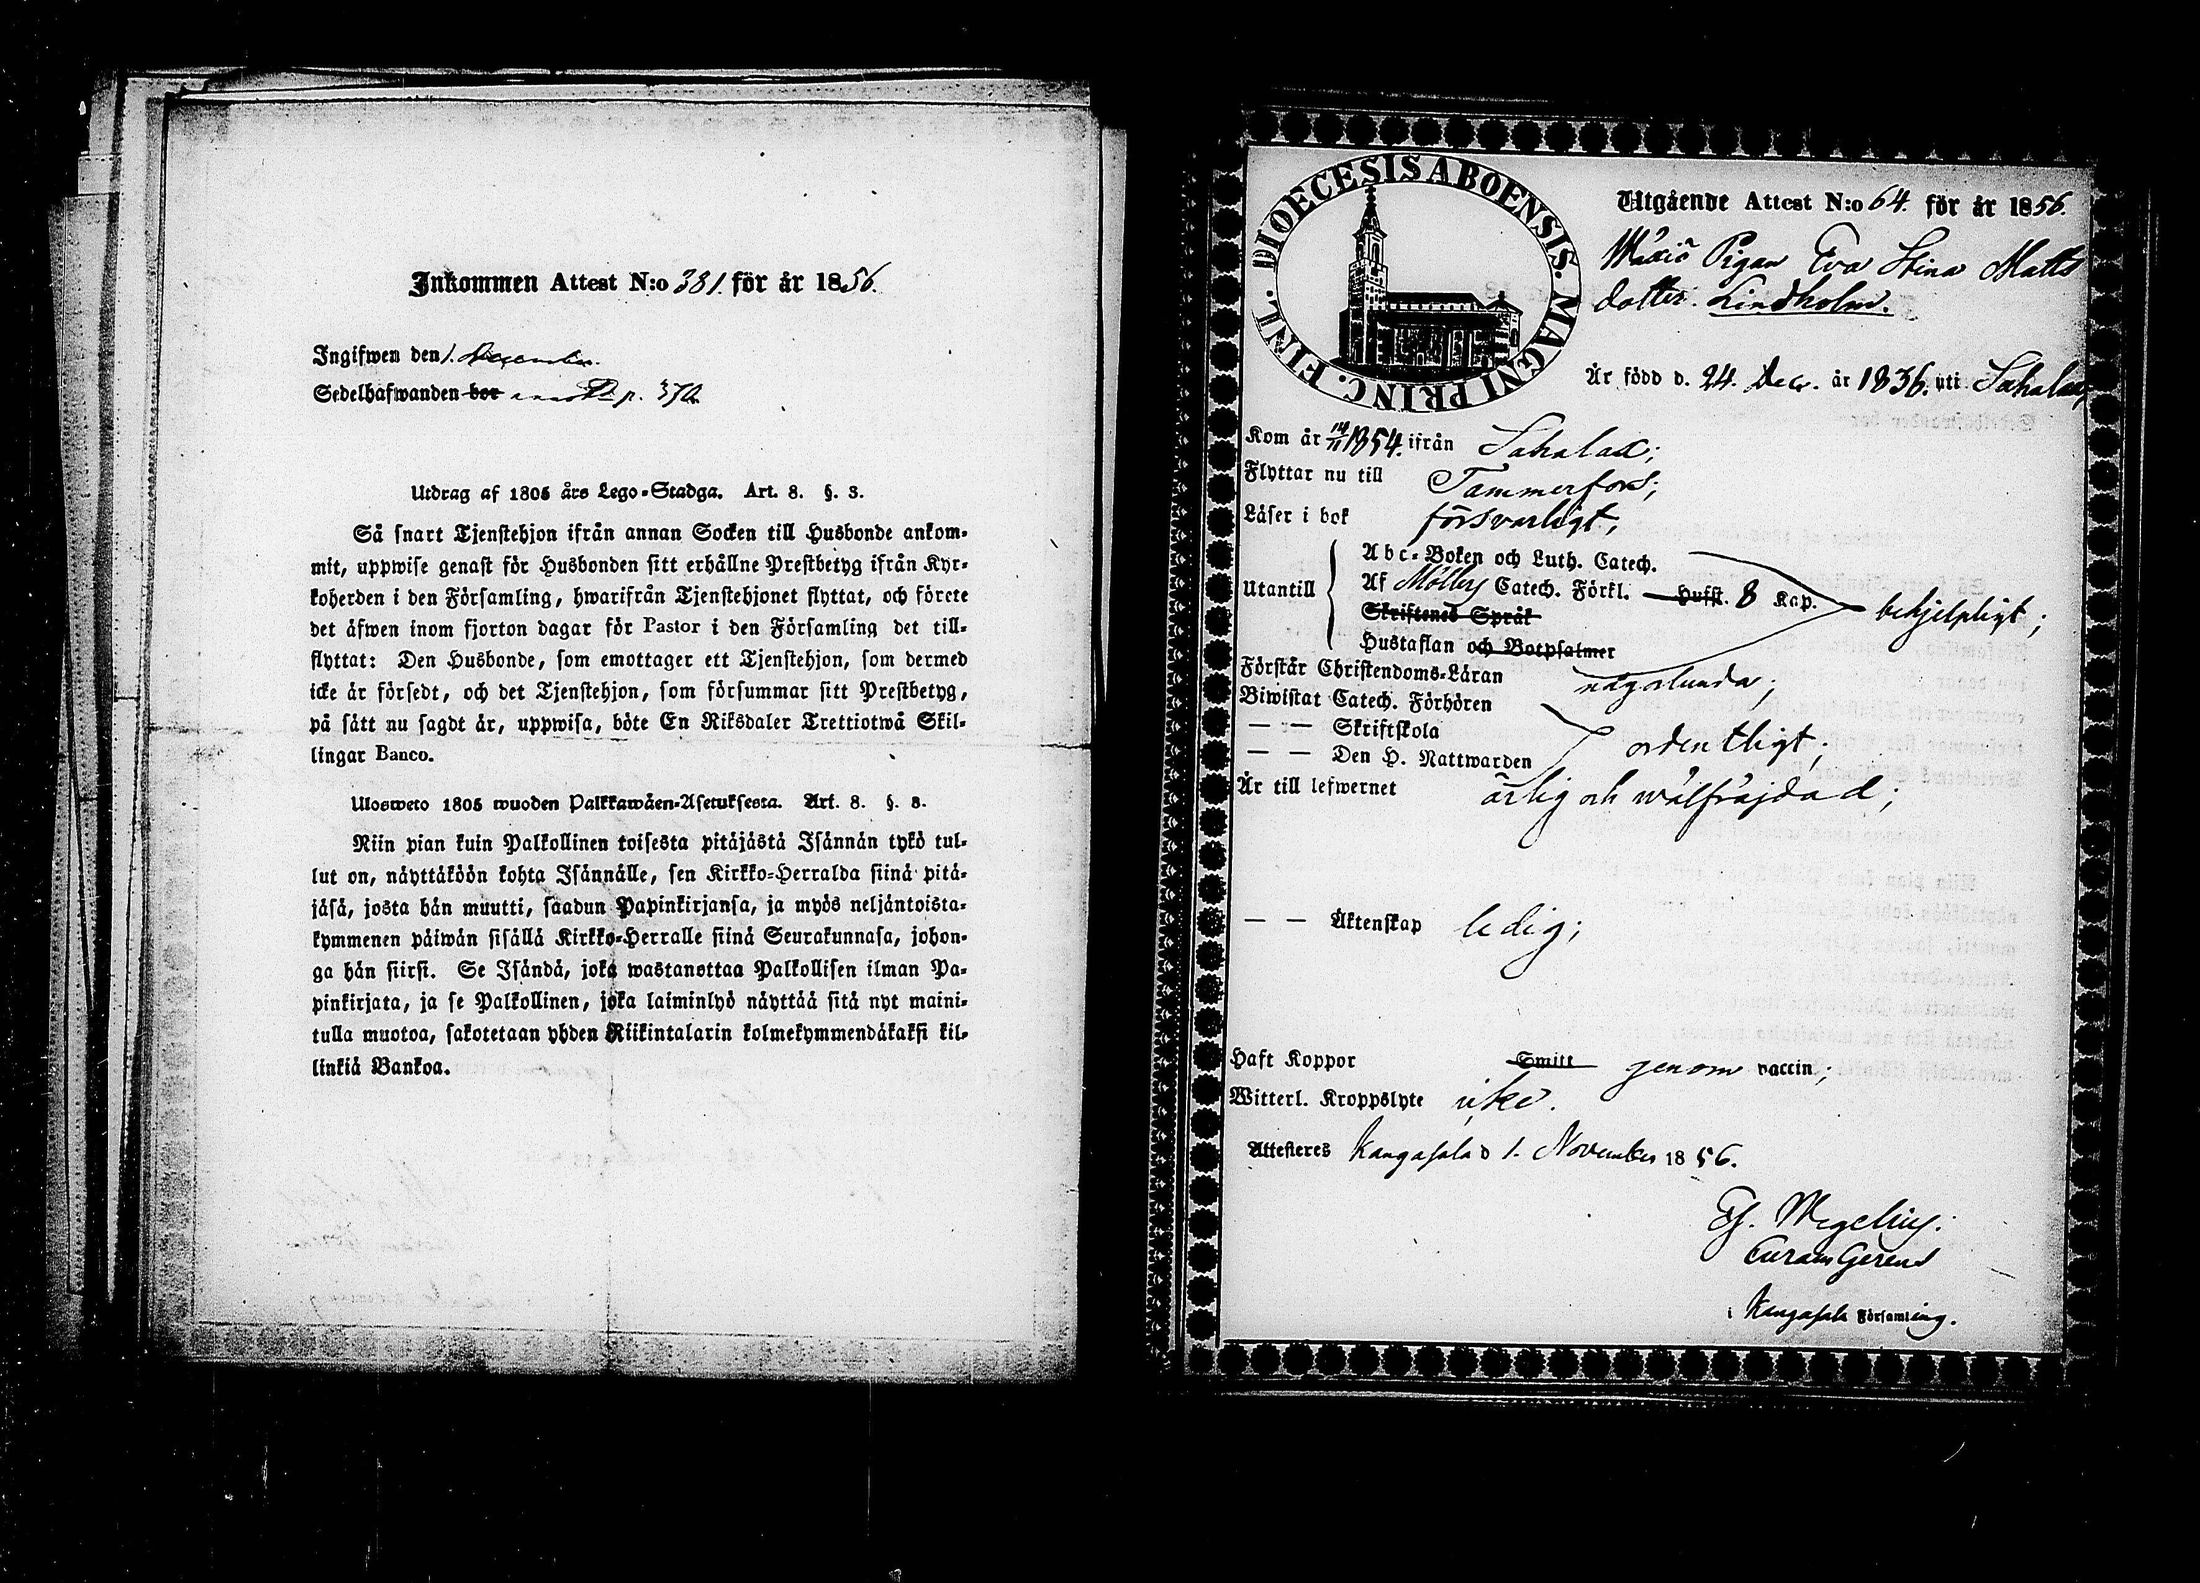 Inkommen Attest N:o 381. för år 1856.
Ingifwen den 1. December
Sedelhafwanden bor p. 370.
Utdrag af 1805 års Lego-Stadga. Art. 8. §. 3.
Så snart Tjenstehjon ifrån annan Socken till Husbonde ankom-
mit, uppwise genast för Husbonden sitt erhållne Prestbetyg ifrån Kyr-
koherden i den Församling, hwarifrån Tjenstehjonet flyttat, och förete
det äfwen inom fjorton dagar för Pastor i den Församling det till-
flyttat: Den Husbonde, som emottager ett Tjenstehjon, som dermed
icke är försedt, och det Tjenstehjon, som försummar sitt Prestbetyg,
på sätt nu sagdt är, uppwisa, böte En Riksdaler Trettiotwå Skil-
lingar Banco.
Ulosweto 1805 wuoden Palkkawäen-Asetuksesta. Art. 8. §. 3.
Niin pian kuin Palkollinen toisesta pitäjästä Isännän tykö tul-
lut on, näyttäköön kohta Isännälle, sen Kirkko-Herralda siinä pitä-
jäsä, josta hän muutti, saadun Papinkirjansa, ja myös neljäntoista-
kymmenen päiwän sisällä Kirkko-Herralle siinä Seurakunnasa, johon-
ga hän siirsi. Se Isändä, joka wastanottaa Palkollisen ilman Pa-
pinkirjata, ja se Palkollinen, joka laiminlyö näyttää sitä nyt maini-
tulla muotoa, sakotetaan yhden Riikintalarin kolmekymmendäkaksi kil-
linkiä Bankoa.
DIOECESIS ABOENSIS. MAGNI PRINC. FINL.
Utgående Attest N:o 64. för år 1856.
Pigan Eva Stina Matts
dotter Lindholm.
Är född d. 24. Decr. år 1836. uti Sahalax,
Kom år 14/11 1854. ifrån Sahalax;
Flyttar nu till Tammerfors;
Läser i bok försvarligt,
Utantill
Abc-Boken och Luth. Catech.
Af Möllers Catech. Förkl. Hufst. 8 Kap.
behjelpligt;
Skriftenes Språk
Hustaflan och Botpsalmer
Förstår Christendoms-Läran någorlunda;
Biwistat Catech. Förhören
— — Skriftskola
ordentligt;
— — Den H. Nattwarden
Är till lefwernet ärlig och wälfräjdad;
— — Äktenskap ledig;
Haft Koppor Smitt genom vaccin;
Witterl. Kroppslyte icke.
Attesteres Kangasala d 1. November 1856.
Wegelius.
Curam Gerens
i Kangasala Församling.